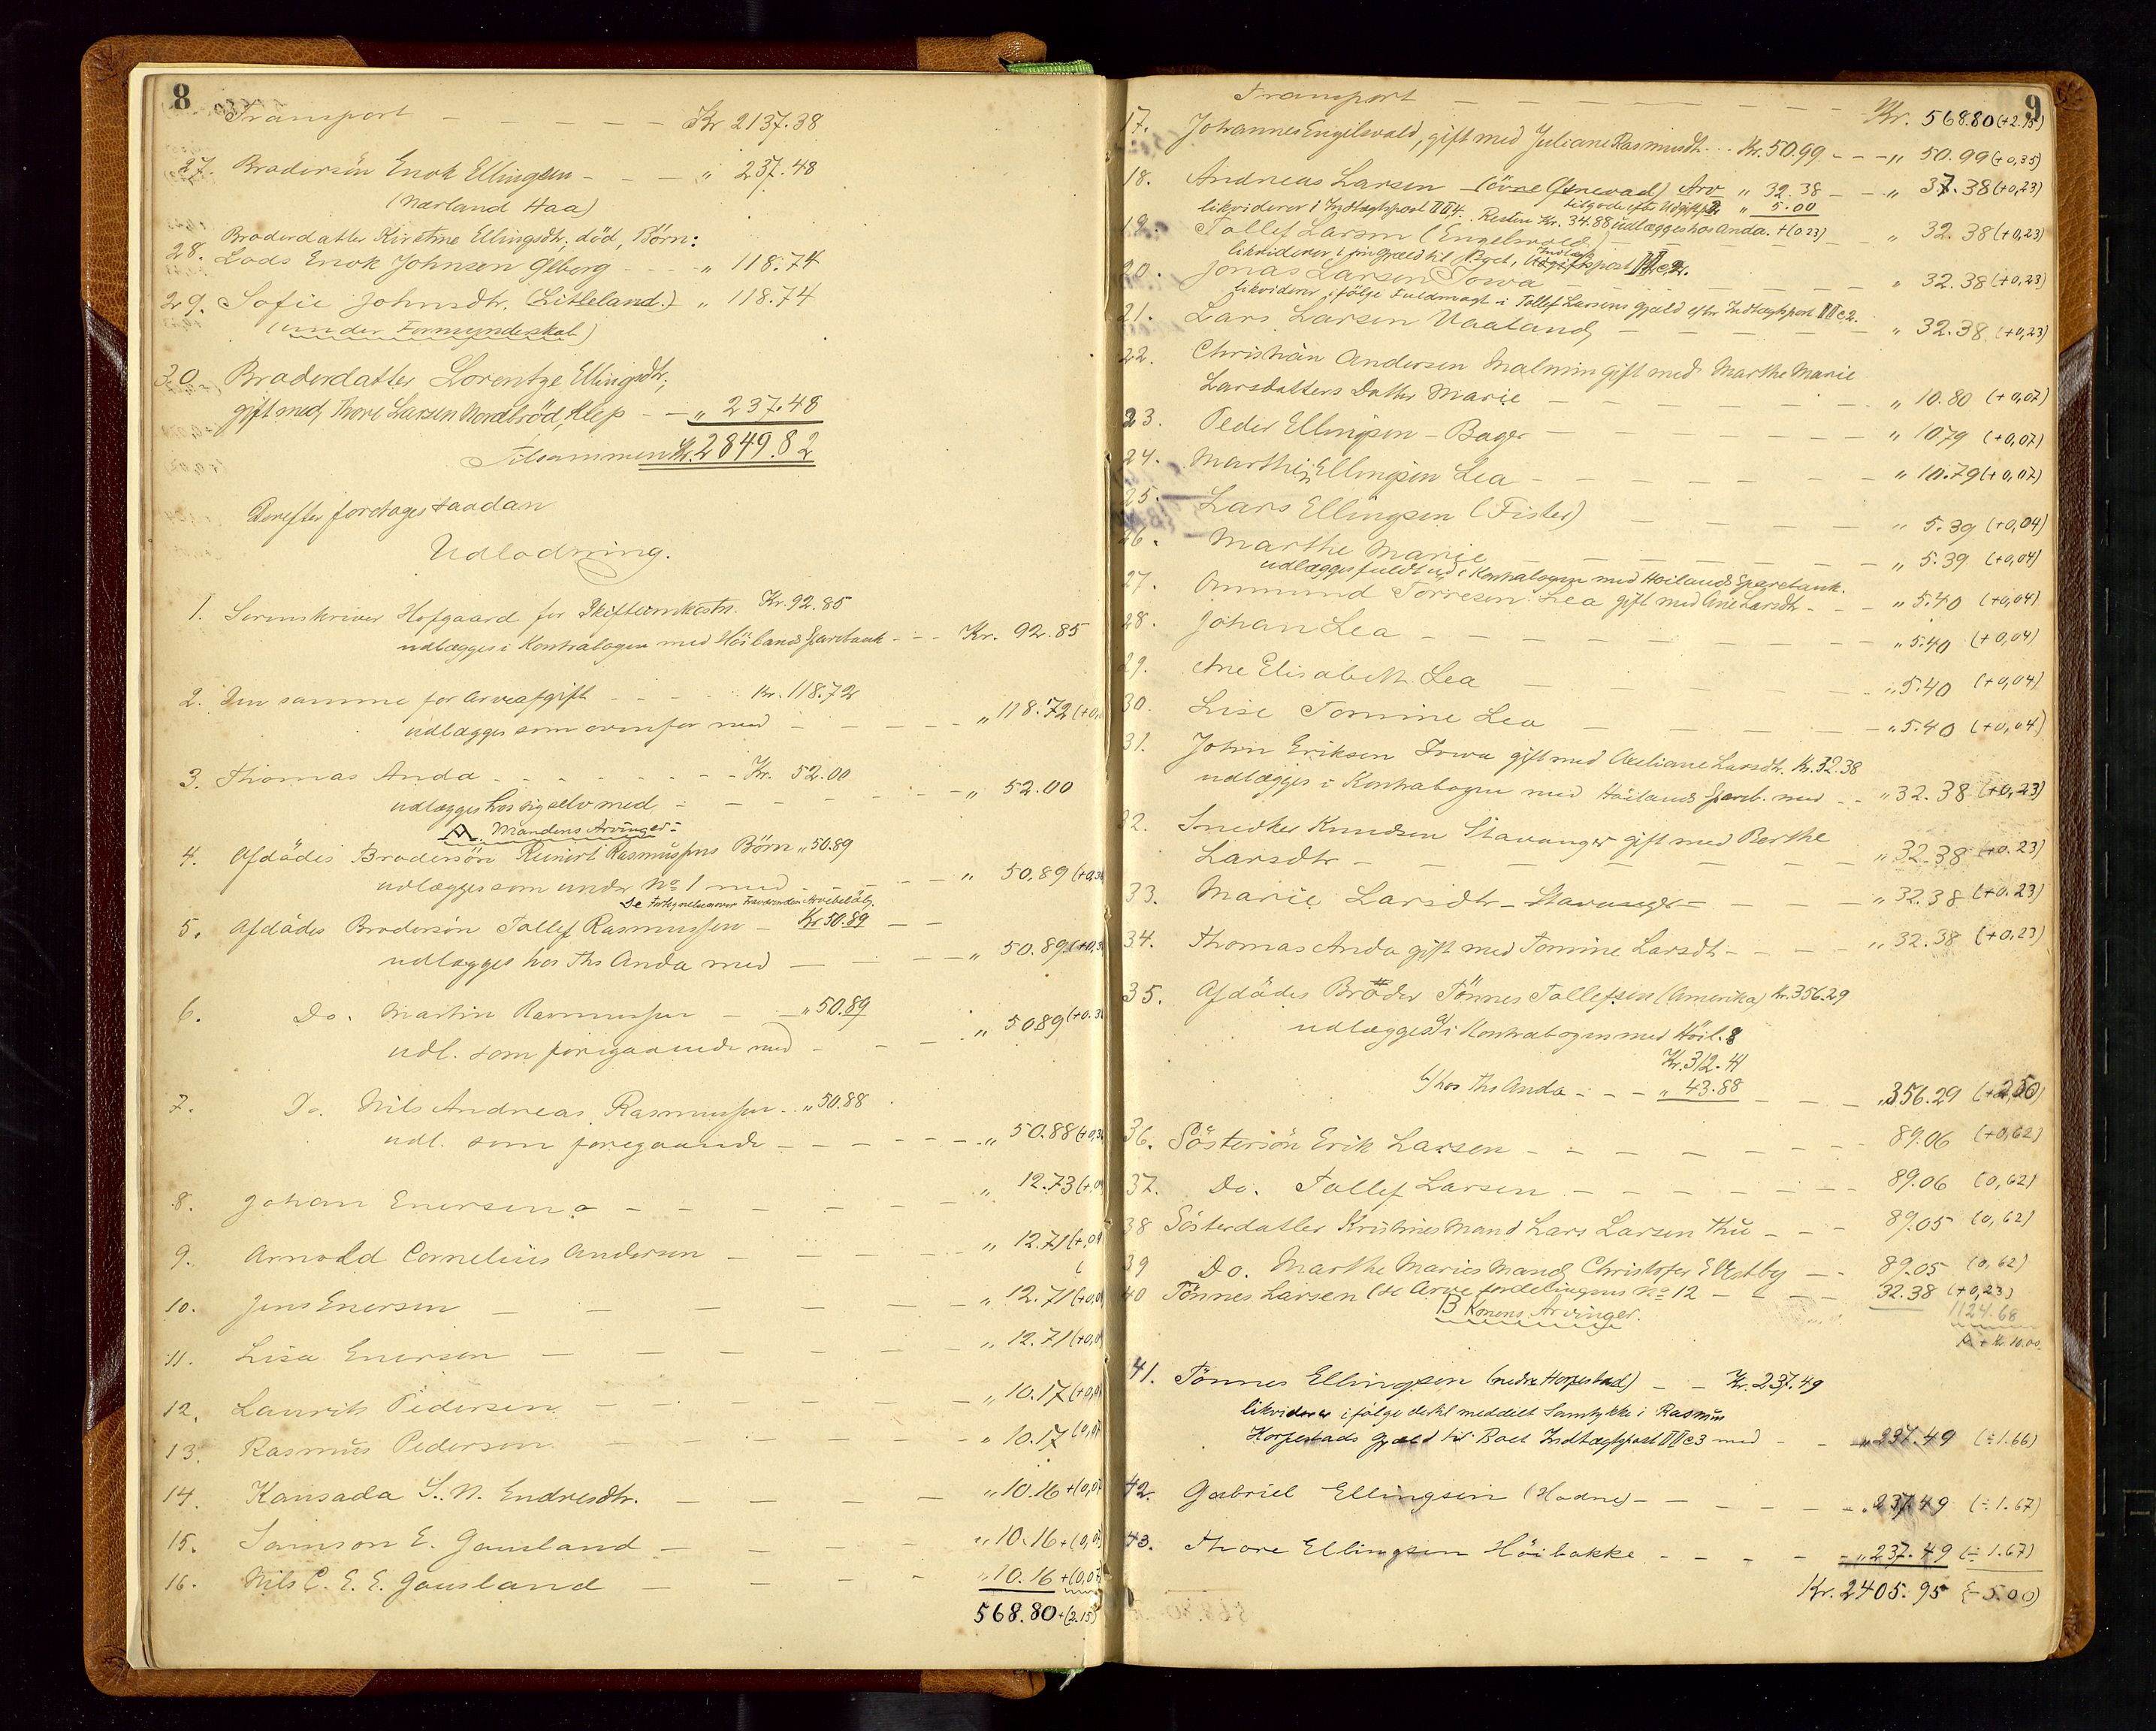 8
Transport - - - - - Kr 2137.38
27. Brodersön Enok Ellingsen - - - „ 237.48
(Nærland Haa)
Broderdatter Kirstine Ellingsdtr, død, Börn:
28. Lods Enok Johnsen Olborg - - - „ 118.74
29. Sofie Johnsdtr. (Litleland.) „ 118.74
(under Formynderskab)
30. Broderdatter Lorentze Ellingsdtr,
gift med Thore Larsen Nordbröd, Klep - - „ 237.48
Tilsammen Kr. 2849.82
Derefter foretoges saadan
Udlodning.
1. Sorenskriver Hofgaard for Skifteomkostn. Kr. 92.85
udlægges i Kontrabogen med Höilands Sparebank - - Kr. 92.85
2. Den samme for Arveafgift - - - - Kr. 118.72
udlægges som ovenfor med - - - - - „ 118.72 (+0,
3. Thomas Anda - - - - - - - Kr. 52.00
udlægges hos sig selv med - - - - - - „ 52.00
A. Mandens Arvinger:
4. Afdödes Brodersön Reinert Rasmussens Börn „ 50.89
udlægges som under No 1 med - - - - „ 50,89 (+0,3
5. Afdödes Brodersön Tollef Rasmussen - Kr. 50.89 - -
udlægges hos Ths Anda med - - - - „ 50.89 (+0,3
6. Do. Martin Rasmussen - - „ 50.89
udl. som foregaaende med - - - - „ 50 89 (+0.3
7. Do. Nils Andreas Rasmussen - „ 50.88
udl. som foregaaende - - - - - - „ 50.88 (+0,3
8. Johan Enersen - - - - - - „ 12.73 (+,0
9. Arnold Cornelius Andersen - - - - - „ 12.71 (+,0
10. Jens Enersen - - - - - - „ 12.71 (+0,0
11. Lisa Enersen - - - - - - „ 12.71 (+0,0
12. Laurits Pedersen - - - - - - „ 10.17 (+0,0
13. Rasmus Pedersen - - - - - - „ 10.17 (0,07
14. Kansada S. N. Endresdtr. - - - - „ 10.16 +(0,07
15. Samson E. Gausland - - - - „ 10.16 +(0,07
16. Nils C. E. E. Gausland - - - - „ 10.16 +(0,07
568.80 +(2.15)
9
Transport - - - - - - - Kr. 568.80 (+2.15)
17. Johannes Engilsvold, gift med Juliane Rasmusdtr. - Kr. 50.99 - - - „ 50.99 (+0,35)
18. Andreas Larsen - (övre Omevad) Arv „ 32.38 - - „ 37.38 (+0,23)
tilgode efter Udgiftsp. 2 „ 5.00
likviderer i Indtægtspost III 4. Resten Kr. 34.88 udlægges hos Anda. +(0 23)
19. Tollef Larsen (Engelsvold) - - - „ 32.38 (+0,23)
likviderer i sin Gjæld til Boet, Indtægtspost II c 2.
20. Jonas Larsen Iowa - - - - „ 32.38 (+0,23)
likviderer ifölge Fuldmagt i Tollef Larsens Gjæld efter Indtægtspost II c 2.
21. Lars Larsen Vaaland - - - - „ 32.38 (+0,23)
22. Christian Andersen Malmin gift med Marthe Marie
Larsdatters Datter Marie - - - - - „ 10.80 (+0,07)
23. Peder Ellingsen - Bager - - - - - „ 10 79 (+0,07)
24. Marthin Ellingsen Lea - - - - - „ 10.79 (+0,07)
25. Lars Ellingsen (Fister) - - - - - „ 5.39 (+0,04)
26. Marthe Marie - - - - - - „ 5.39 (+0,04)
udlægges fuldt ud i Kontrabogen med Höilands Sparebank.
27. Ommund Torresen Lea gift med Ane Larsdtr - - - „ 5.40 (+0,04)
28. Johan Lea - - - - - - „ 5.40 (+0,04)
29. Ane Elisabeth Lea - - - - - - „ 5.40 (+0,04)
30. Lise Tomine Lea - - - - - „ 5.40 (+0,04)
31. John Eriksen Iowa gift med Aseliane Larsdtr. Kr. 32.38
udlægges i Kontrabogen med Höilands Spareb. med - - „ 32.38 (+0,23)
32. Snedker Knudsen Stavanger gift med Berthe
Larsdtr - - - - - - „ 32.38 (+0.23)
33. Marie Larsdtr - Stavanger - - - - „ 32.38 (+0.23)
34. Thomas Anda gift med Tomine Larsdtr - - - - „ 32.38 (+0,23)
35. Afdödes Broder Tönnes Tollefsen (Amerika) Kr. 356.29
udlægges a/ i Kontrabogen med Höil. S
Kr. 312.41
b/ hos Ths Anda - - - „ 43.88 - - - - „ 356.29 (+2,50)
36. Söstersön Erik Larsen - - - - - - 89.06 (+0,62)
37. Do. Tollef Larsen - - - - - - 89.06 (0,62)
38 Sösterdatter Kristines Mand Lars Larsen Thu - - - 89.05 (0,62)
39 Do. Marthe Maries Mand Christofer E Vestby - - 89.05 (0,62)
40 Tönnes Larsen (se Arvefordelingens No 12 - - - - 32.38 (+0,23)
B Konens Arvinger.
1124.68
A + Kr. 10.00
41. Tönnes Ellingsen (nedre Horpestad) - - Kr. 237.49
likviderer ifölge dertil meddelt Samtykke i Rasmus
Horpestads Gjæld til Boet Indtægtspost II c 3 med - - „ 237.49 (÷1.66)
42. Gabriel Ellingsen (Hodne) - - - - - - „ 237.49 (÷1.67)
43. Thore Ellingsen Höibakke - - - - - - „ 237.49 (÷1.67)
Kr. 2405.95 (÷5.00)